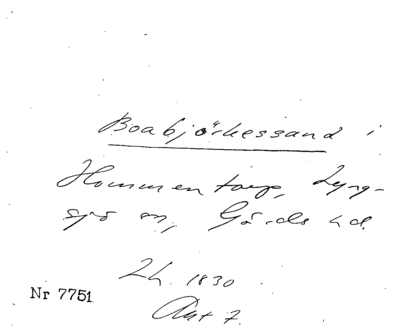 Boabjörkessand i
Hommentorp, Lyng-
sjö sn, Gärds hd.
Lh. 1830
Akt 7.
Nr 7751.